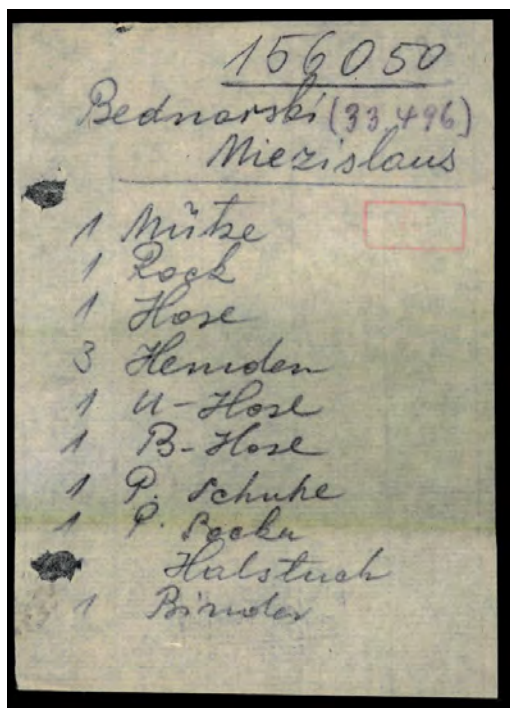 156050
Bednarski (33 496)
Miezislaus
1 Mütze
1 Rock
1 Hose
3 Hemden
1 U-Hose
1 B-Hose
1 P. Schuhe
1 P. Socken
Halstuch
1 Binder